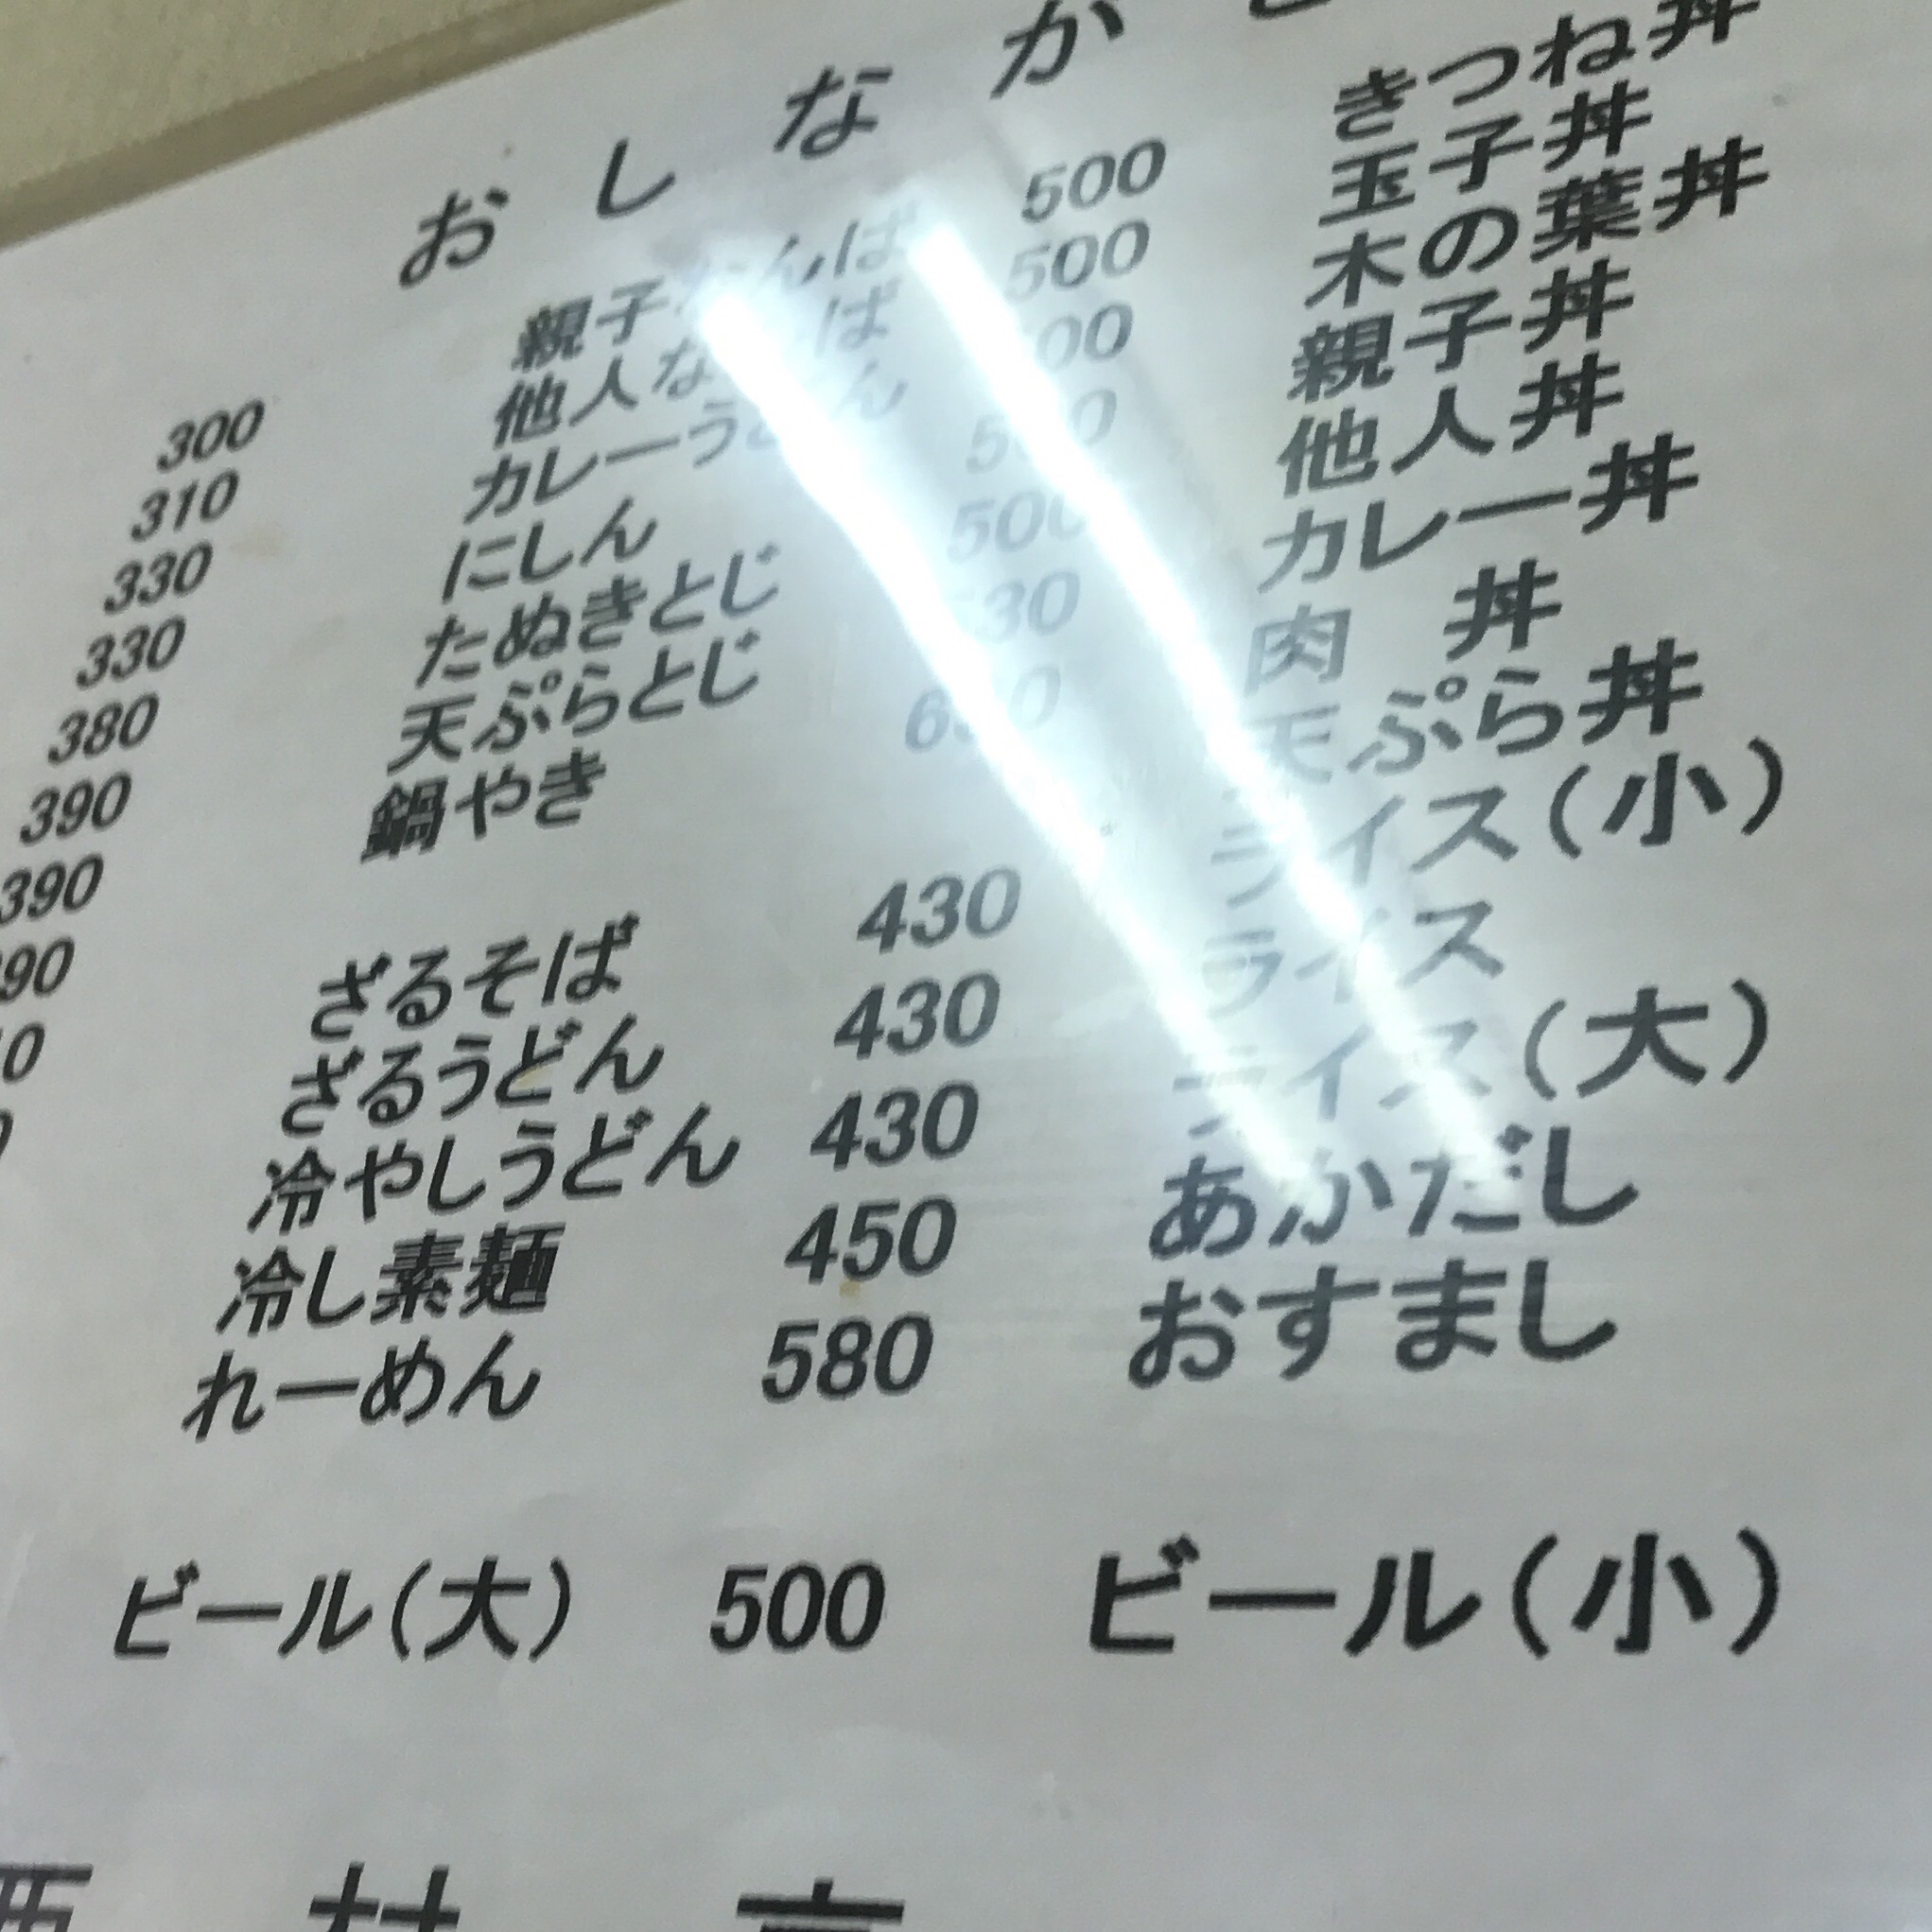 おしなが
300
310
330
330
380
390
390
90
0
親子なんば 500
他人なんば 500
カレーうどん 500
にしん 500
たぬきとじ 500
天ぷらとじ
鍋やき
ざるそば 430
ざるうどん 430
冷やしうどん 430
冷し素麺 450
れーめん 580
きつね丼
玉子丼
木の葉丼
親子丼
他人丼
カレー丼
肉 丼
天ぷら丼
ライス(小)
ライス
ライス(大)
あかだし
おすまし
ビール(大) 500 ビール(小)